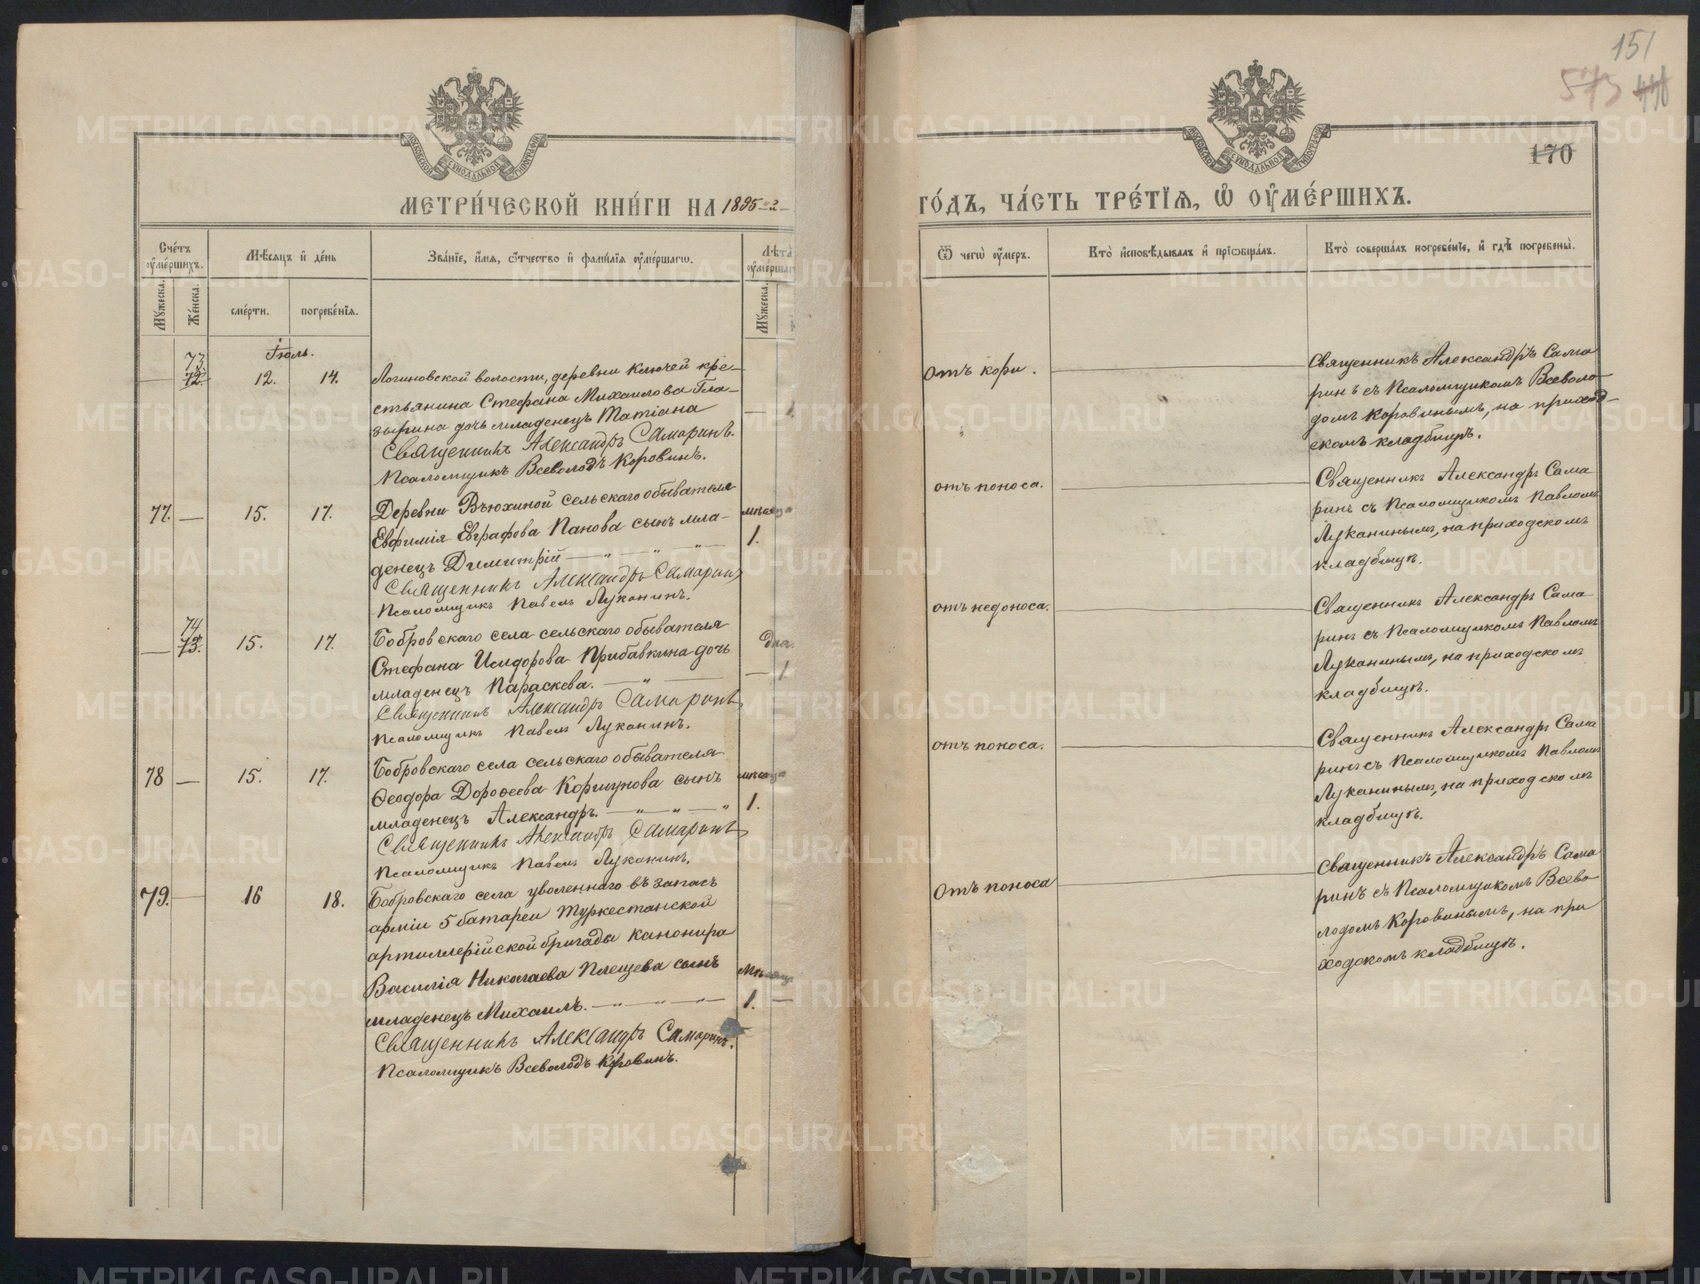 151
575
170
МЕТРИ́ЧЕСКОЙ КНИ́ГИ НА 1895-й
ГО́ДЪ, ЧА́СТЬ ТРЕ́ТІѦ, Ѡ҆ ОУ҆МЕ́РШИХЪ.
Сче́тъ оу҆ме́ршихъ.
Мѣ́сяцъ и҆ де́нь
Зва́нїе, и҆́мя, ѻ҆́тчество и҆ фами́лїя оу҆ме́ршагѡ.
Лѣта̀
оу҆ме́ршаг
Му́жеска.
Же́нска.
сме́рти.
погребе́нїя.
Му́жеска.
Ѿ чегѡ̀ оу҆́меръ.
Кто̀ и҆сповѣ́дывалъ и҆ прїѡбща́лъ.
Кто̀ соверша́лъ погребе́нїе, и҆ гдѣ̀ погребены̀.
Іюль.
73
72. 12. 14.
Логиновской волости, деревни Ключей кре-
стьянина Стефана Михаилова Гла-
зырина дочь младенецъ Татіана
Священникъ Александръ Самаринъ.
Псаломщикъ Всеволодъ Коровинъ.
— 1
Отъ кори.
Священникъ Александръ Сама
ринъ съ Псаломщикомъ Всеволо-
домъ Коровинымъ, на приход-
скомъ кладбищѣ.
77. — 15. 17.
Деревни Вьюхиной сельскаго обывателя
Евфимія Евграфова Панова сынъ мла-
денецъ Димитрій — " — " —
Священникъ Александръ Самаринъ
Псаломщикъ Павелъ Луканинъ.
мѣсяца
1.
отъ поноса.
Священникъ Александръ Сама
ринъ съ Псаломщикомъ Павломъ
Луканинымъ, на приходскомъ
кладбищѣ.
74
— 73. 15. 17.
Бобровскаго села сельскаго обывателя
Стефана Исидорова Прибавкина дочь
младенецъ Параскева. — " —
Священникъ Александръ Самаринъ
Псаломщикъ Павелъ Луканинъ.
дня.
— 1
отъ недоноса.
Священникъ Александръ Сама-
ринъ съ Псаломщикомъ Павломъ
Луканинымъ, на приходскомъ
кладбищѣ.
78 — 15. 17.
Бобровскаго села сельскаго обывателя
Ѳеодора Дороѳеева Коршунова сынъ
младенецъ Александръ. — " — " — "
Священникъ Александръ Самаринъ
Псаломщикъ Павелъ Луканинъ.
мѣсяца
1.
отъ поноса.
Священникъ Александръ Сама
ринъ съ Псаломщикомъ Павломъ
Луканинымъ, на приходскомъ
кладбищѣ.
79. — 16 18.
Бобровскаго села уволеннаго въ запасъ
арміи 5 батареи Туркестанской
артиллерійской бригады канонира
Василія Николаева Плещева сынъ
младенецъ Михаилъ. — " — " —
Священникъ Александръ Самаринъ.
Псаломщикъ Всеволодъ Коровинъ.
мѣсяца
1. —
Отъ поноса
Священникъ Александръ Сама
ринъ съ Псаломщикомъ Всево
лодомъ Коровинымъ, на при
ходскомъ кладбищѣ.
METRIKI.GASO-URAL.RU